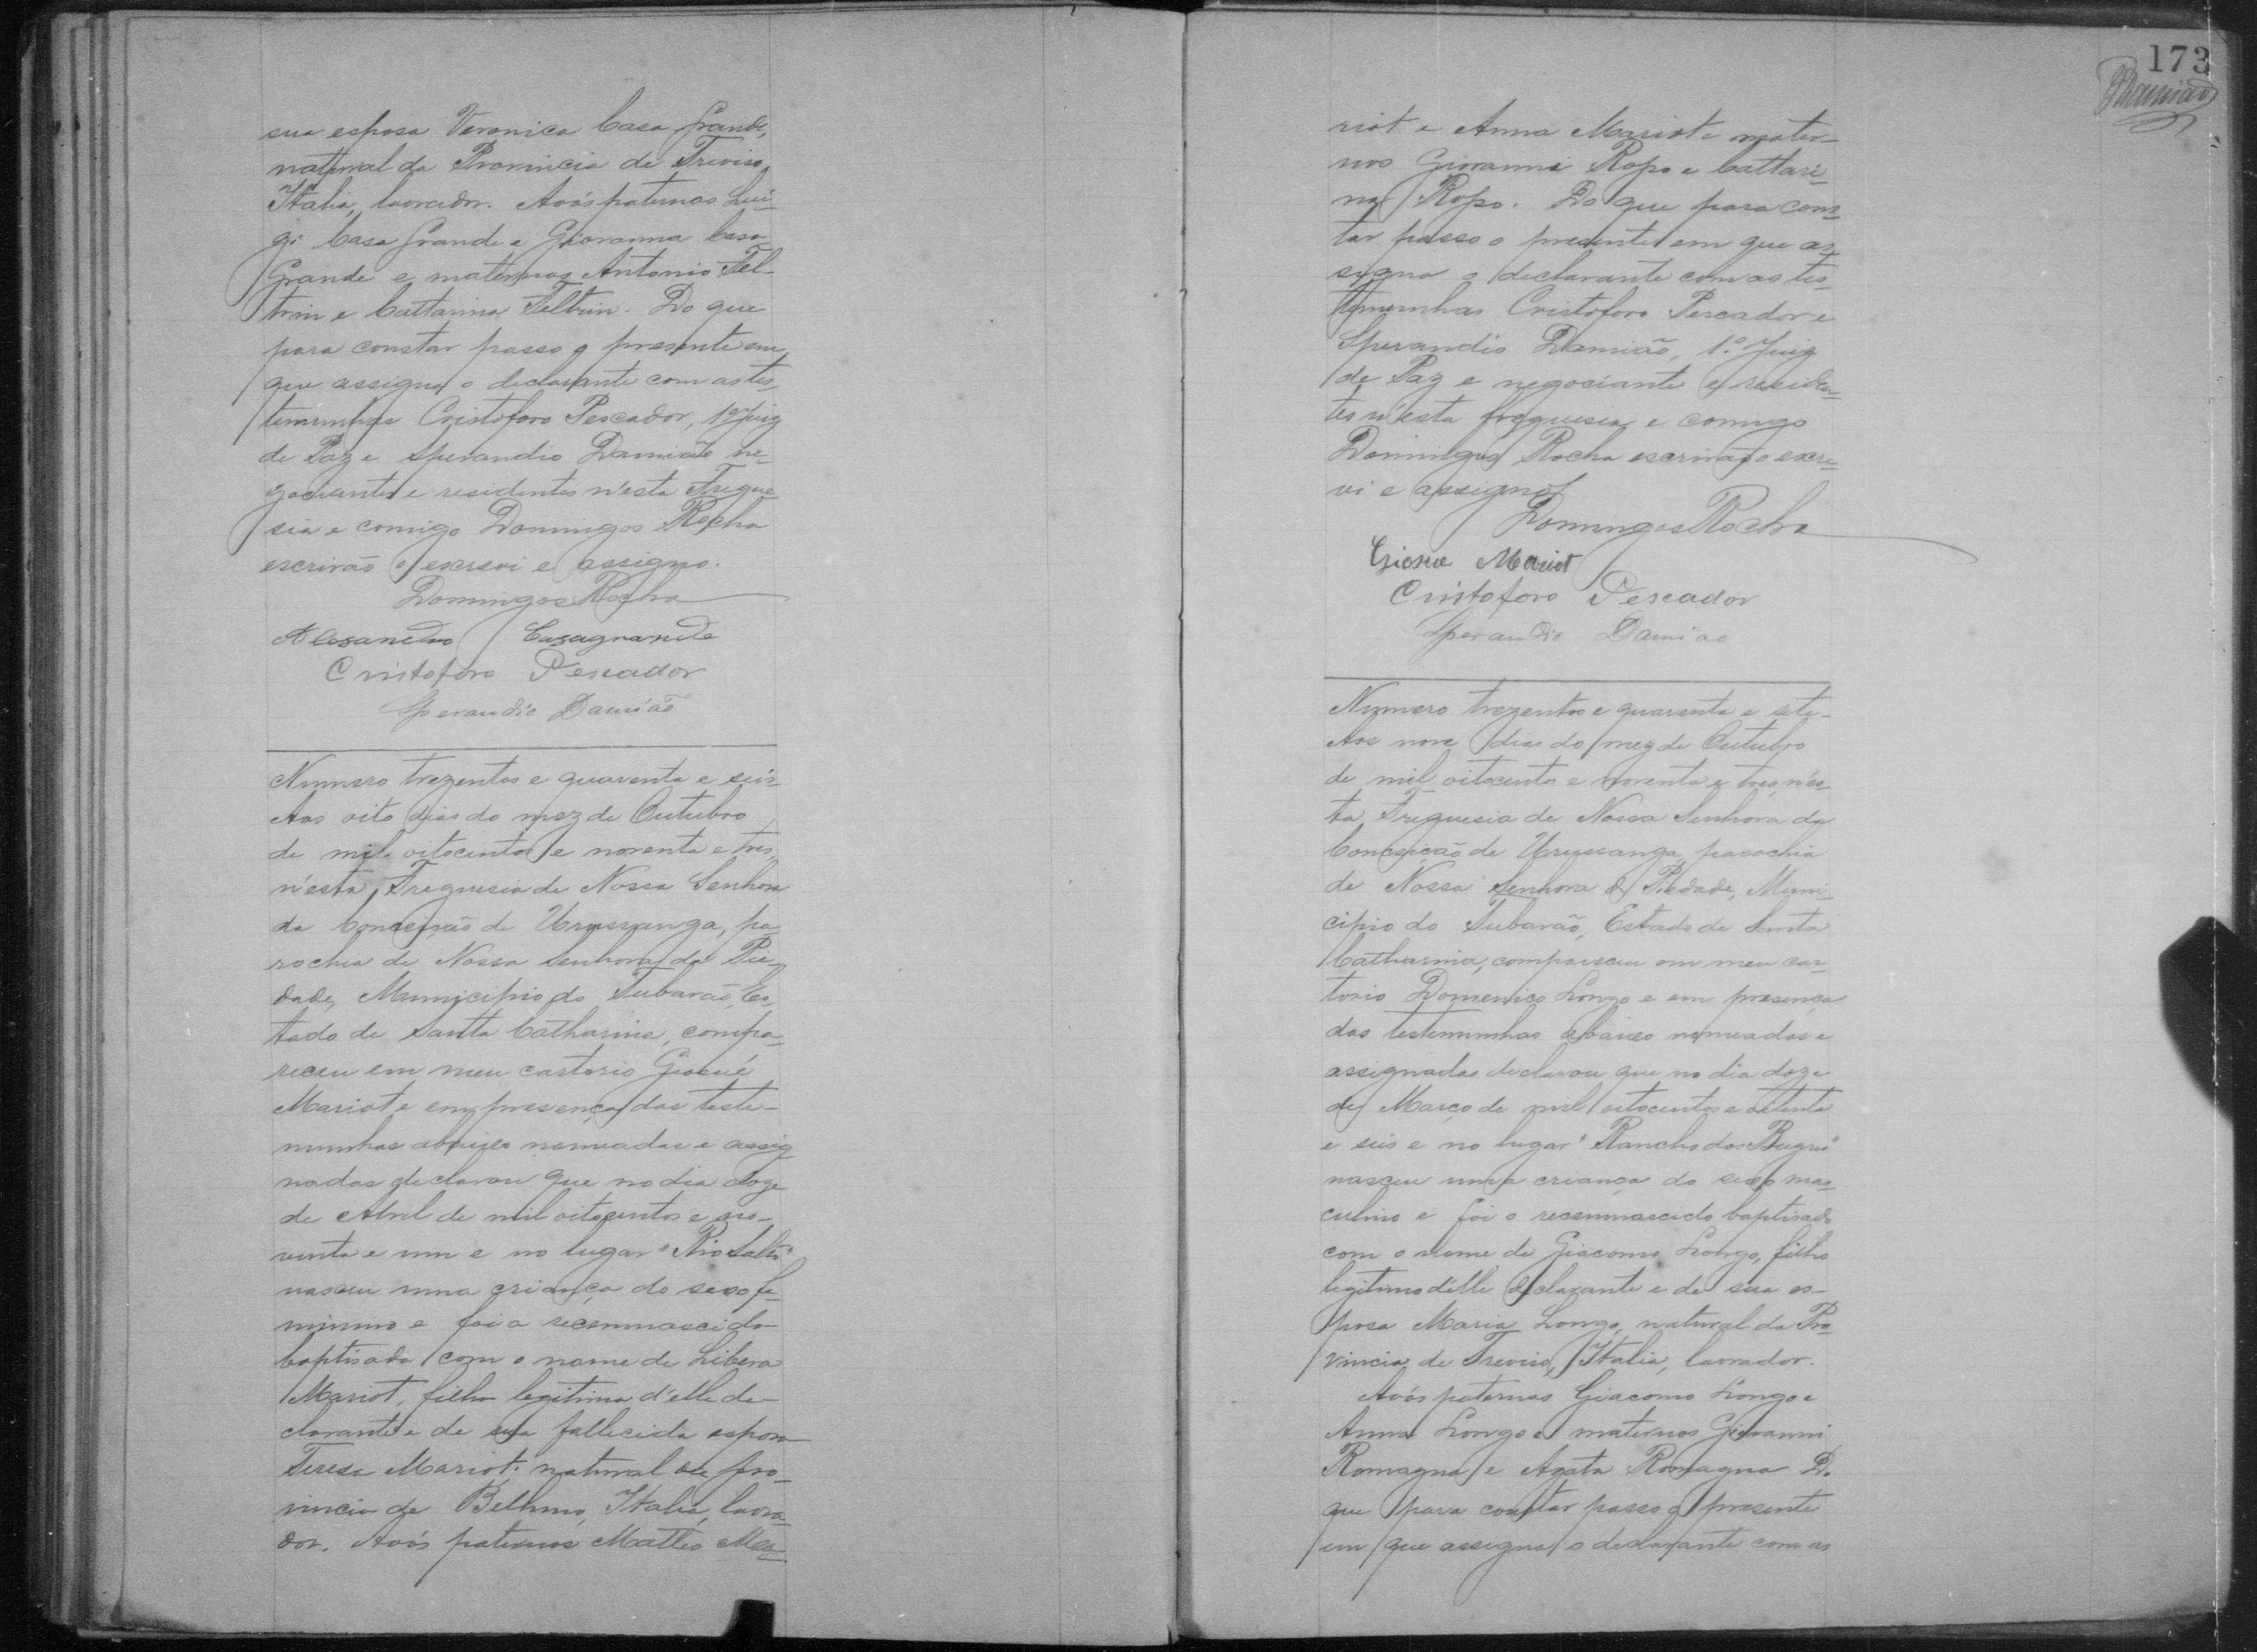 sua esposa Veronica Casa Grande,
natural da Provincia de Treviso,
Italia, lavrador. Avós paternos Lui-
gi Casa Grande e Giovanna Casa
Grande e maternos Antonio Fel-
trin e Cattarina Feltrin. Do que
para constar passo o presente em
que assigna o declarante com as tes-
temunhas Cristoforo Pescador, 1º Juiz
de Paz e Sperandio Damião ne-
gociante e residentes n'esta Fregue-
sia e comigo Domingos Rocha
escrivão o escrevi e assigno.
Domingos Rocha
Alesandro Casagrande
Cristoforo Pescador
Sperandio Damião
Numero trezentos e quarenta e seis-
Aos oito dias do mez de Outubro
de mil oitocentos e noventa e tres,
n'esta Freguesia de Nossa Senhora
da Conceição de Urussanga, pa-
rochia de Nossa Senhora da Pie-
dade, Municipio do Tubarão, Es-
tado de Santa Catharina, compa-
receu em meu cartorio Giosué
Mariot e em presença das teste-
munhas abaixo nomeadas e assig
nadas declarou que no dia doze
de Abril de mil oitocentos e no-
venta e um e no lugar "Rio Salto"
nasceu uma criança do sexo fe-
minino e foi a recemnascida
baptisada com o nome de Libera
Mariot, filha legitima d'elle de-
clarante e de sua fallecida esposa
Teresa Mariot, natural da pro-
vincia de Belluno, Italia, lavra-
dor. Avós paternos Matteo Ma-
173
Damião
riot e Anna Mariot e mater-
nos Giovanni Rosso e Cattari-
na Rosso. Do que para cons-
tar passo o presente em que as-
signa o declarante com as tes-
temunhas Cristoforo Pescador e
Sperandio Damião, 1º Juiz
de Paz e negociante e residen-
tes n'esta freguesia e comigo
Domingos Rocha escrivão o escre-
vi e assigno
Domingos Rocha
Giosue Mariot
Cristoforo Pescador
Sperandio Damiao
Numero trezentos e quarenta e sete-
Aos nove dias do mez de Outubro
de mil oitocentos e noventa e tres, n'es-
ta Freguesia de Nossa Senhora da
Conceição de Urussanga, parochia
de Nossa Senhora da Piedade, Muni-
cipio do Tubarão, Estado de Santa
Catharina, compareceu em meu car-
torio Domenico Longo e em presença
das testemunhas abaixo nomeadas e
assignadas declarou que no dia doze
de Março de mil oitocentos e oitenta
e seis e no lugar "Rancho dos Bugres"
nasceu uma criança do sexo mas-
culino e foi o recemnascido baptisado
com o nome de Giacomo Longo, filho
legitimo d'elle declarante e de sua es-
posa Maria Longo, natural da Pro-
vincia de Treviso, Italia, lavrador.
Avós paternos Giacomo Longo e
Anna Longo e maternos Giovanni
Romagna e Agata Romagna Do
que para constar passo o presente
em que assigna o declarante com as